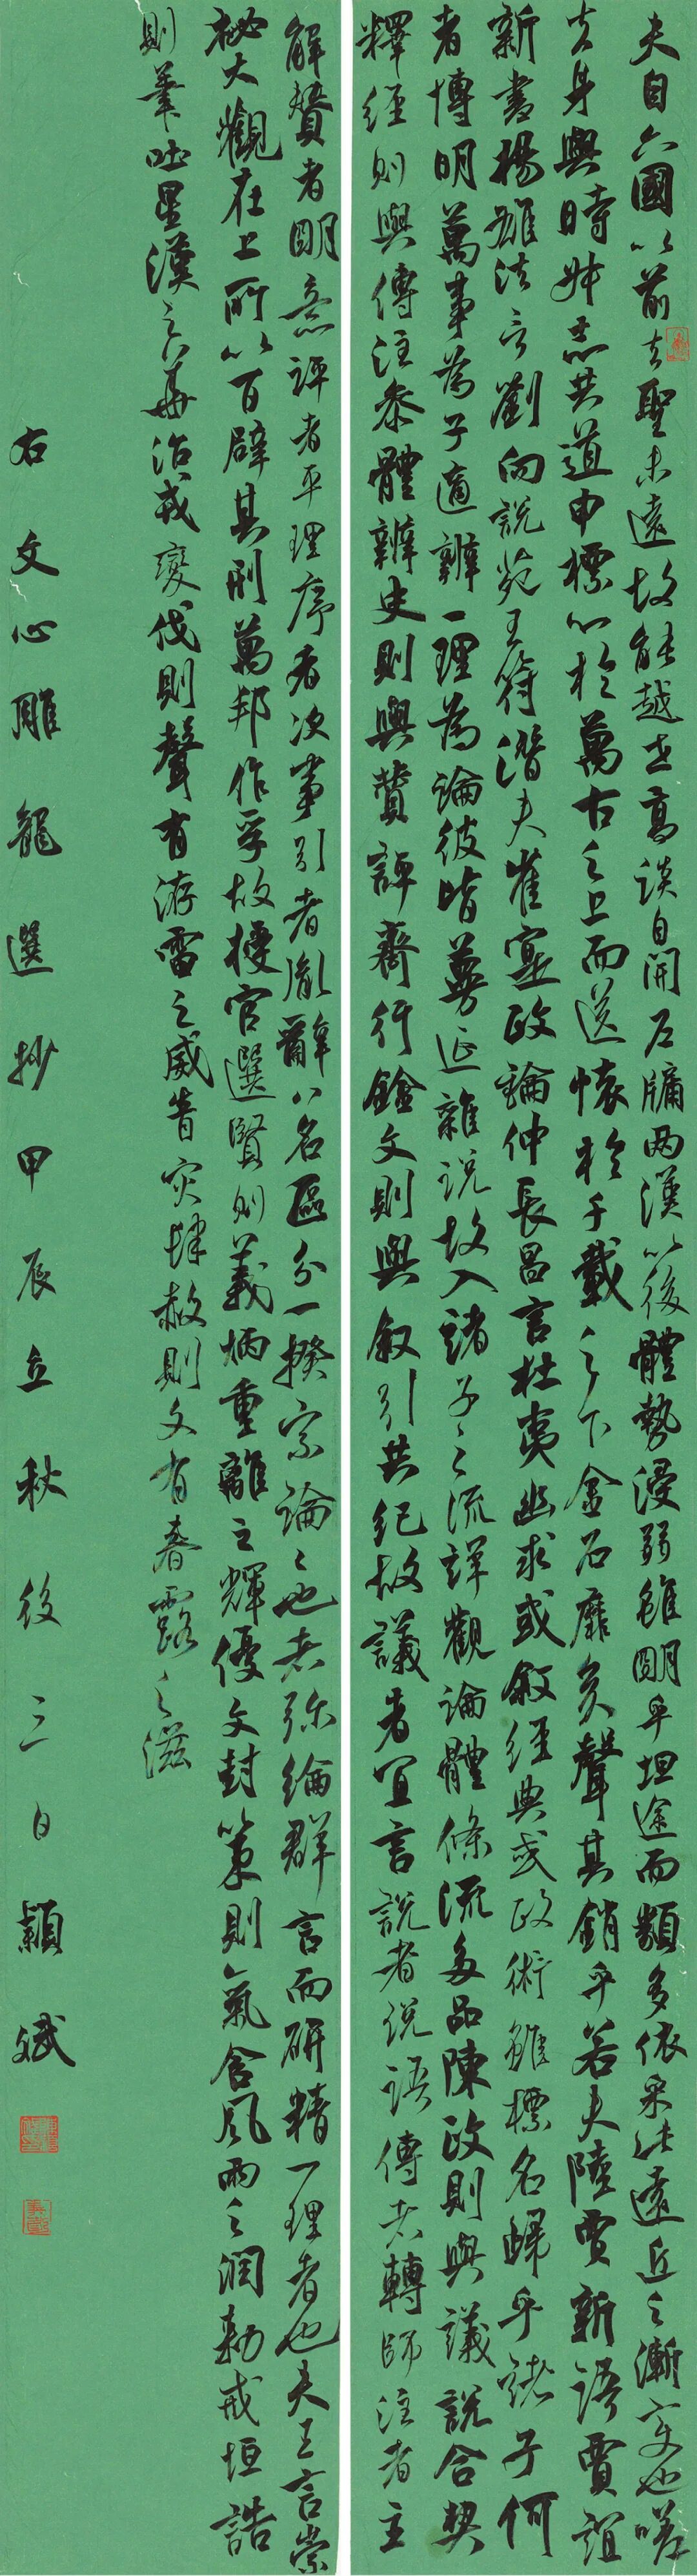 夫自六國以前去聖未遠故能越世高談自開戶牖兩漢以後體勢浸弱雖明乎坦途而類多依采此遠近之漸變也嗟
夫身與時舛志共道申標心於萬古之上而送懷於千載之下金石靡矣聲其銷乎若夫陸賈新語賈誼
新書揚雄法言劉向說苑王符潛夫崔寔政論仲長昌言杜夷幽求或敘經典或政術雖標名歸乎諸子何
者博明萬事為子適辨一理為論彼皆蔓延雜說故入諸子之流詳觀論體條流多品陳政則與議說合契
釋經則與傳注參體辨史則與贊評齊行銓文則與叙引共紀故議者宜言說者說語傳者轉師注者主
解贊者明意評者平理序者次事引者胤辭八名區分一揆宗論論也者彌綸群言而研精一理者也夫王言崇
祕大觀在上所以百辟其刑萬邦作孚故授官選賢則義炳重離之輝優文封策則氣含風雨之潤勅戒恒誥
則筆吐星漢之華治戎燮伐則聲有洊雷之威眚災肆赦則文有春露之滋
右文心雕龍選抄甲辰立秋後三日穎斌